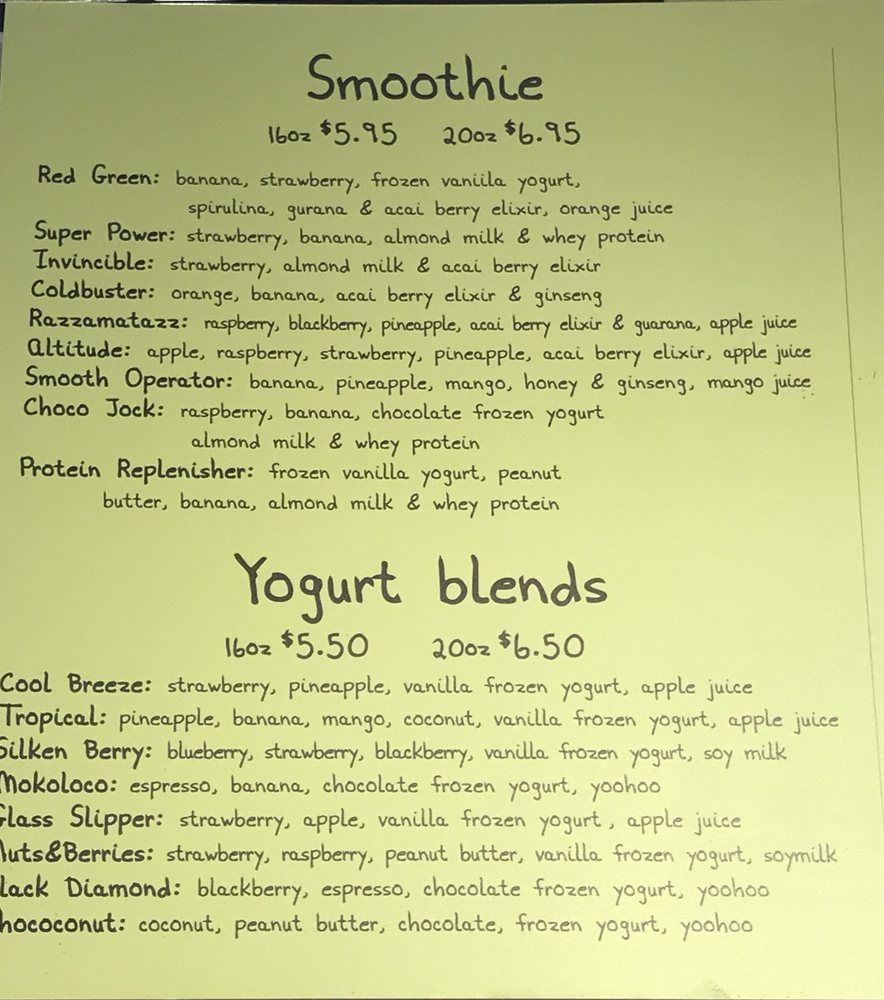 Smoothie
16oz $5.95 20oz $6.95
Red Green: banana, strawberry, frozen vaniila yogurt,
spirulina, gurana & acai berry elixir, orange juice
Super Power: strawberry, banana, almond milk & whey protein
Invincible: strawberry, almond milk & acai berry elixir
Coldbuster: orange, banana, acai berry elixir & ginseng
Razzamatazz: raspberry, blackberry, pineapple, acai berry elixir & guarana, apple juice
Altitude: apple, raspberry, strawberry, pineapple, acai berry elixir, apple juice
Smooth Operator: banana, pineapple, mango, honey & ginseng, mango juice
Choco Jock: raspberry, banana, chocolate frozen yogurt
almond milk & whey protein
Protein Replenisher: frozen vanilla yogurt, peanut
butter, banana, almond milk & whey protein
Yogurt blends
16oz $5.50 20oz $6.50
Cool Breeze: strawberry, pineapple, vanilla frozen yogurt, apple juice
Tropical: pineapple, banana, mango, coconut, vanilla frozen yogurt, apple juice
Silken Berry: blueberry, strawberry, blackberry, vanilla frozen yogurt, soy milk
Mokoloco: espresso, banana, chocolate frozen yogurt, yoohoo
Glass Slipper: strawberry, apple, vanilla frozen yogurt, apple juice
Nuts&Berries: strawberry, raspberry, peanut butter, vanilla frozen yogurt, soymilk
lack Diamond: blackberry, espresso, chocolate frozen yogurt, yoohoo
hococonut: coconut, peanut butter, chocolate, frozen yogurt, yoohoo